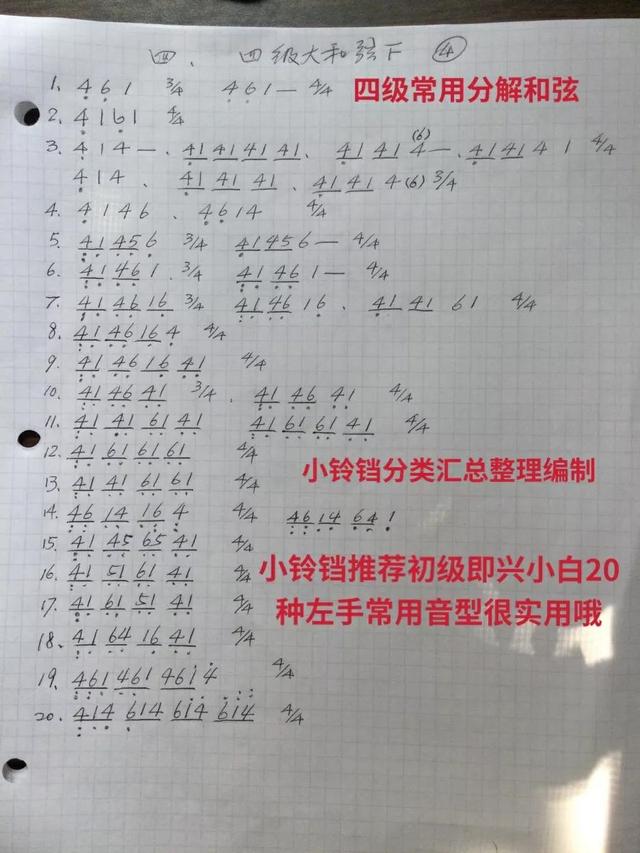 四、 四级大和弦下 ④
四级常用分解和弦
1. 4 6 1 3/4 4 6 1 — 4/4
2. 4 1 6 1 4/4
3. 4 1 4 —、 41 41 41 41、 41 41 4(6) —、 41 41 4 1 4/4
4 1 4 、 41 41 41 、 41 41 4(6) 3/4
4. 4 1 4 6 、 4 6 1 4 4/4
5. 41 45 6 3/4 41 45 6 — 4/4
6. 41 46 1 . 3/4 41 46 1 — 4/4
7. 41 46 16 3/4 41 46 1 6 、 41 41 6 1 4/4
8. 41 46 16 4 4/4
9. 41 46 16 41 4/4
10. 41 46 41 3/4 、 41 46 4 1 4/4
11. 41 41 61 41 41 61 61 41 4/4
12. 41 61 61 61 4/4
小铃铛分类汇总整理编制
13. 41 41 61 61 4/4
14. 46 14 16 4 4/4 46 14 64 1
15. 41 45 65 41 4/4
小铃铛推荐初级即兴小白20
16. 41 51 61 41 4/4
种左手常用音型很实用哦
17. 41 61 51 41 4/4
18. 41 64 16 41 4/4
19. 461 461 461 4 4/4
20. 414 614 614 614 4/4